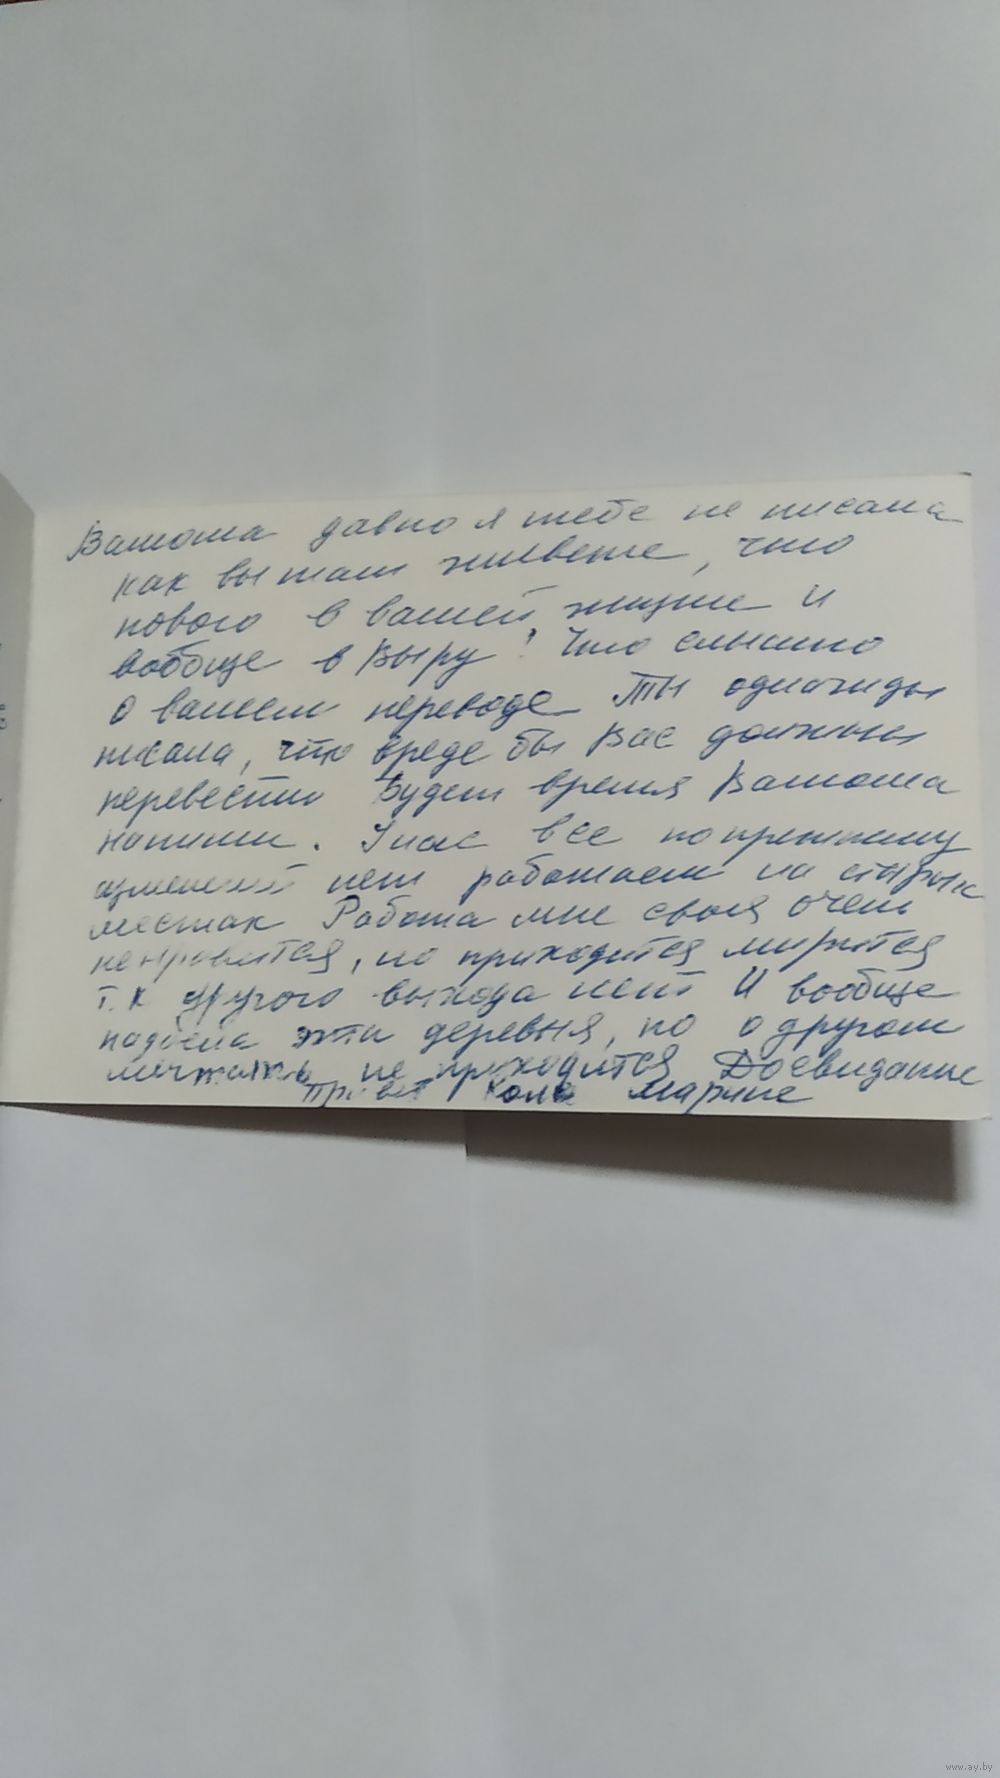 Валюша давно я тебе не писала
как вы там живете, что
нового в вашей жизни и
вообще в Выру? Что слышно
о вашем переводе Ты однажды
писала, что вреде бы Вас должны
перевести Будет время Валюша
напиши. У нас все попрежнему
изменений нет работаем на старых
местах Работа мне своя очень
ненравится, но приходится мирится
т.к другого выхода нет И вообще
надоела эта деревня, но о другом
мечтать не приходится Досвидание
Привет Коле Марине
www.ay.by